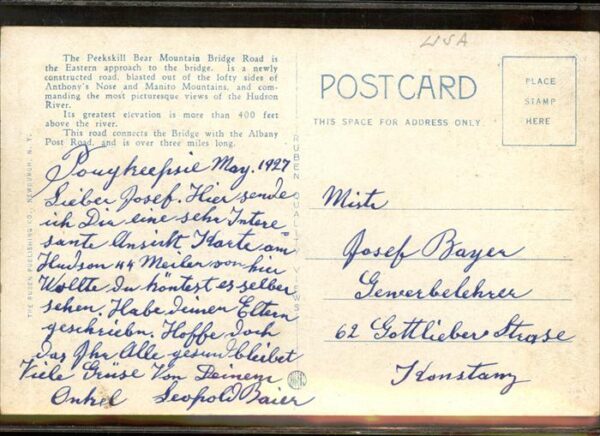 USA
The Peekskill Bear Mountain Bridge Road is
the Eastern approach to the bridge. Is a newly
constructed road, blasted out of the lofty sides of
Anthony's Nose and Manito Mountains, and com-
manding the most picturesque views of the Hudson
River.
Its greatest elevation is more than 400 feet
above the river.
This road connects the Bridge with the Albany
Post Road, and is over three miles long.
Pougkeepsie May. 1927
Lieber Josef. Hier sende
ich Dir eine sehr Intere-
sante Ansicht Karte am
Hudson 44 Meilen von hier
Wollte du köntest es selber
sehen. Habe deiner Eltern
geschriebn. Hoffe doch
das Ihr Alle gesund bleibet
Viele Grüse Von Deinem
Onkel Leopold Baier
THE RUBEN PUBLISHING CO., NEWBURGH, N. Y.
RUBEN QUALITY VIEWS
POSTCARD
THIS SPACE FOR ADDRESS ONLY
PLACE
STAMP
HERE
Mistr
Josef Bayer
Gewerbelehrer
62 Gottlieber Strasse
Konstanz